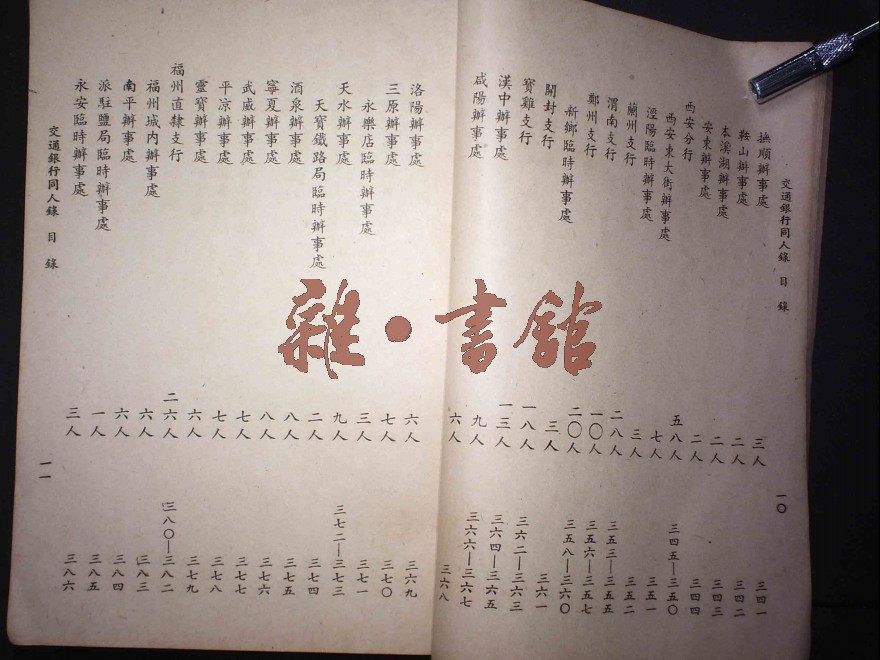 交通銀行同人錄 目錄 一〇
撫順辦事處 三人 三四一
鞍山辦事處 二人 三四二
本溪湖辦事處 二人 三四三
安東辦事處 二人 三四四
西安分行 五八人 三四五—三五〇
西安東大街辦事處 七人 三五一
涇陽臨時辦事處 三人 三五二
蘭州支行 二八人 三五三—三五五
渭南支行 一〇人 三五六—三五七
鄭州支行 二〇人 三五八—三六〇
新鄉臨時辦事處 三人 三六一
開封支行 一八人 三六二—三六三
寶雞支行 一三人 三六四—三六五
漢中辦事處 九人 三六六—三六七
咸陽辦事處 六人 三六八
洛陽辦事處 六人 三六九
三原辦事處 七人 三七〇
永樂店臨時辦事處 三人 三七一
天水辦事處 九人 三七二—三七三
天寶鐵路局臨時辦事處 二人 三七四
酒泉辦事處 八人 三七五
寧夏辦事處 八人 三七六
武威辦事處 七人 三七七
平凉辦事處 七人 三七八
靈寶辦事處 六人 三七九
福州直隸支行 二六人 三八〇—三八二
福州城內辦事處 六人 三八三
南平辦事處 六人 三八四
派駐鹽局臨時辦事處 一人 三八五
永安臨時辦事處 三人 三八六
交通銀行同人錄 目錄 一一
雜·書館